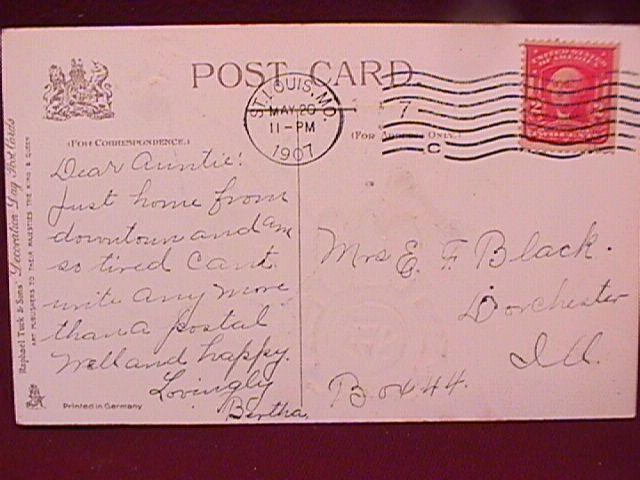 POST CARD
ST. LOUIS, MO.
MAY 26
11-PM
1907
7
C
UNITED STATES
OF AMERICA
2 2
TWO CENTS
(FOR CORRESPONDENCE.)
(FOR ADDRESS ONLY.)
Dear Auntie!
Just home from
downtown and am
so tired Cant
write any more
than a postal
Well and happy.
Lovingly
Bertha.
Mrs E. F. Black.
Dorchester
Ill.
Box 44.
Raphael Tuck & Sons' "Decoration Day" Post Cards
ART PUBLISHERS TO THEIR MAJESTIES THE KING & QUEEN
Printed in Germany